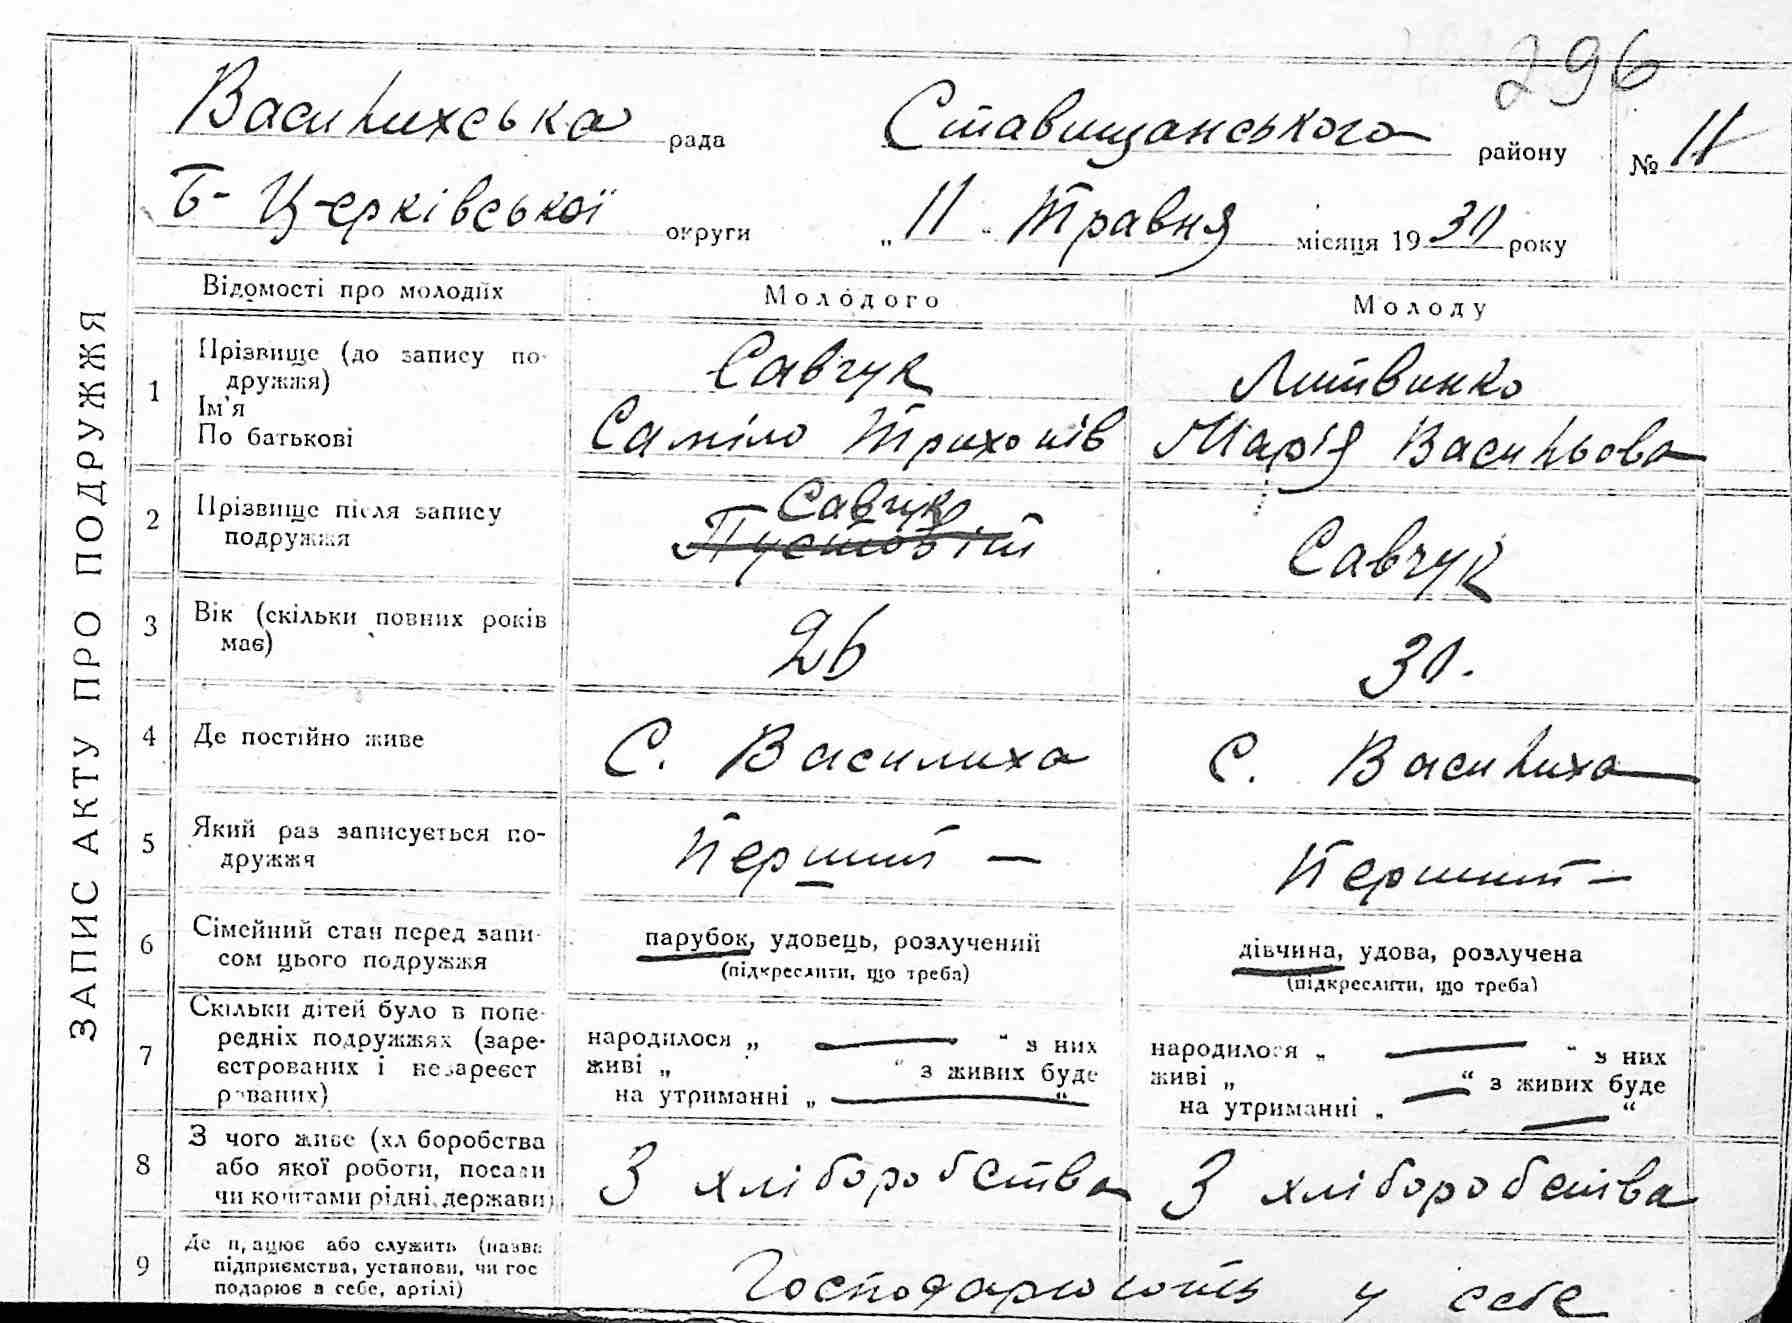 296
Василихська рада Ставищанського району № 11
Б-Церківської округи „11“ Травня місяця 1930 року
ЗАПИС АКТУ ПРО ПОДРУЖЖЯ
Відомості про молодих
Молодого
Молоду
1
Прізвище (до запису по-
дружжя)
Ім'я
По батькові
Савчук
Саміло Трихонів
Литвинко
Марія Васильова
2
Прізвище після запису
подружжя
Савчук
Пустовіт
Савчук
3
Вік (скільки повних років
має)
26
30.
4
Де постійно живе
С. Василиха
С. Василиха
5
Який раз записується по-
дружжя
Перший —
Перший —
6
Сімейний стан перед запи-
сом цього подружжя
парубок, удовець, розлучений
(підкреслити, що треба)
дівчина, удова, розлучена
(підкреслити, що треба)
7
Скільки дітей було в попе-
редніх подружжях (заре-
єстрованих і незареєст
рованих)
народилося „ — “ з них
живі „ “ з живих буде
на утриманні „ — “
народилося „ — “ з них
живі „ — “ з живих буде
на утриманні „ — “
8
З чого живе (хліборобства
або якої роботи, посади
чи коштами рідні, держави)
З хліборобства
З хліборобства
9
Де працює або служить (назва
підприємства, установи, чи гос
подарює в себе, артілі)
Господарюють у себе